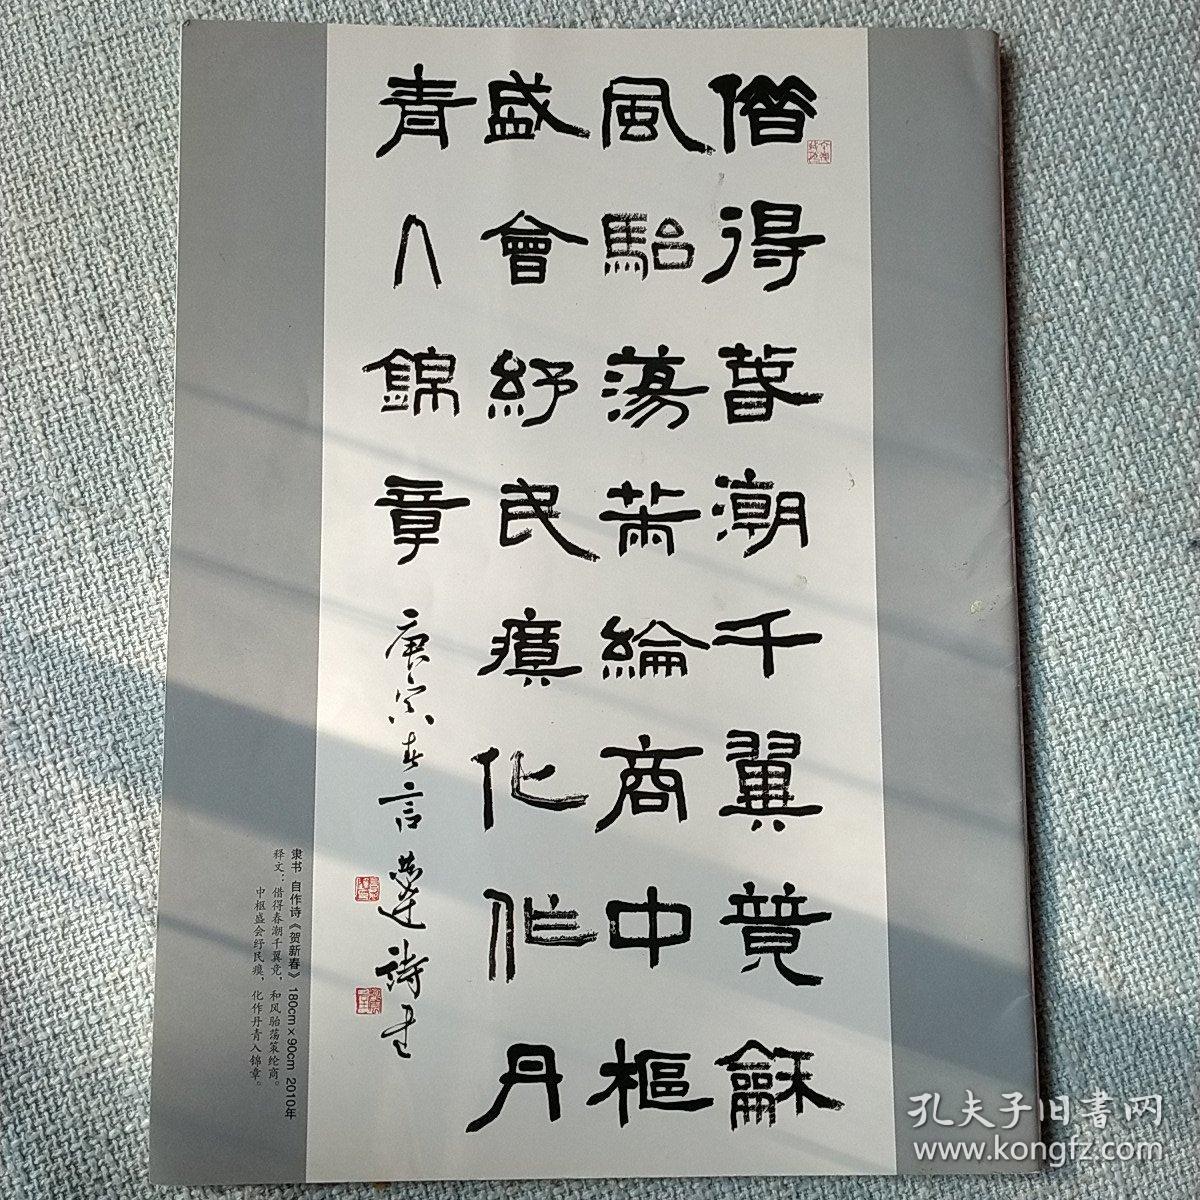 借得春潮千翼竟龢
風駘蕩策綸商中樞
盛會紓民瘼化作丹
青入錦章
庚寅春言恭達詩書
隶书 自作诗《贺新春》 180cm×90cm 2010年
释文：借得春潮千翼竞，和风骀荡策纶商。
中枢盛会纾民瘼，化作丹青入锦章。
孔夫子旧書网
www.kongfz.com